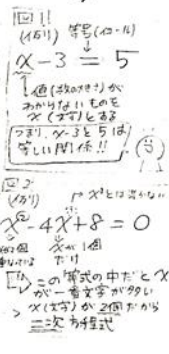 図1!!
(イカリ) 等号(イコール)
x-3=5
値(数の大きさ)が
わからないものを
x(文字)とする
つまり、x-3と5は
等しい関係!!
図2
x²-4x+8=0
xが1個
だけ
この等式の中だとx
が一番文字が多い
x(文字)が2個だから
二次方程式